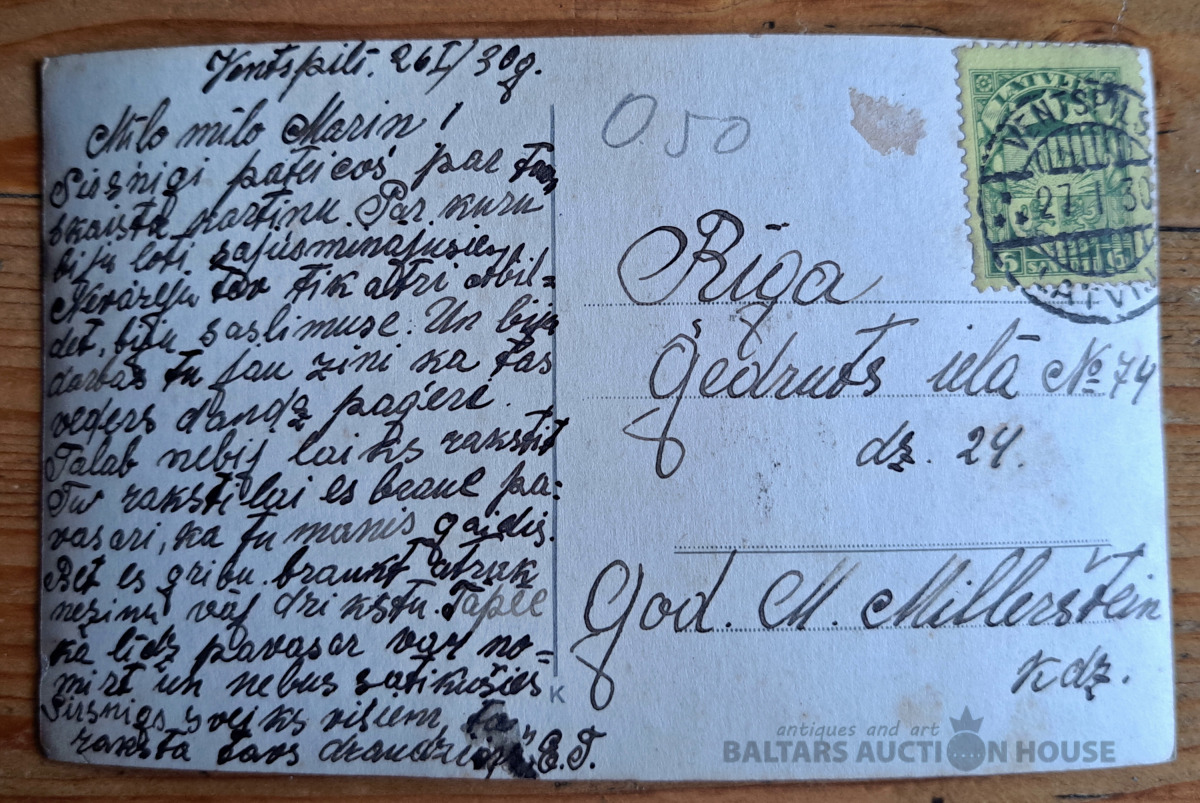 Ventspilī. 26 I/30g.
Mīlo mīlo Marin!
Sirsnigi pateicos par
skaisto kartinu. Par kuru
biju loti sajusminajusies,
Nevareju tev tik atri atbil=
det, biju saslimuse. Un bija
darbas tu jau zini ka tas
veders daudz pageri.
Talab nebij laiks rakstit
Tu raksti lai es brauc pa=
vasari, ka tu manis gaidis.
Bet es gribu braukt atrak
nezinu vaj drikstu. Tapēc
ka līdz pavasar var no=
mirt un nebus satikušies
Sirsnigs sveiks visiem
raksta tavs E.T.
0.50
LATVIJA
5 5
VENTSPILS
27 1 30
LATVIJA
Rīga
Ģedruts ielā № 74
dz. 24.
God. M. Millerštein
kdz.
K
antiques and art
BALTARS AUCTION HOUSE